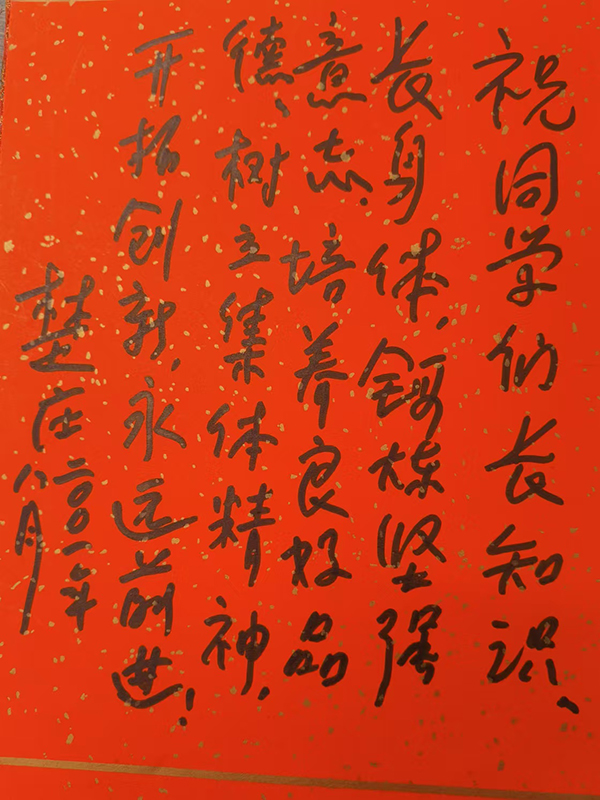 祝同学们长知识、
长身体,锻炼坚强
意志,培养良好品
德、树立集体精神,
开拓创新,永远前进!
楚庄二〇〇一年
八月